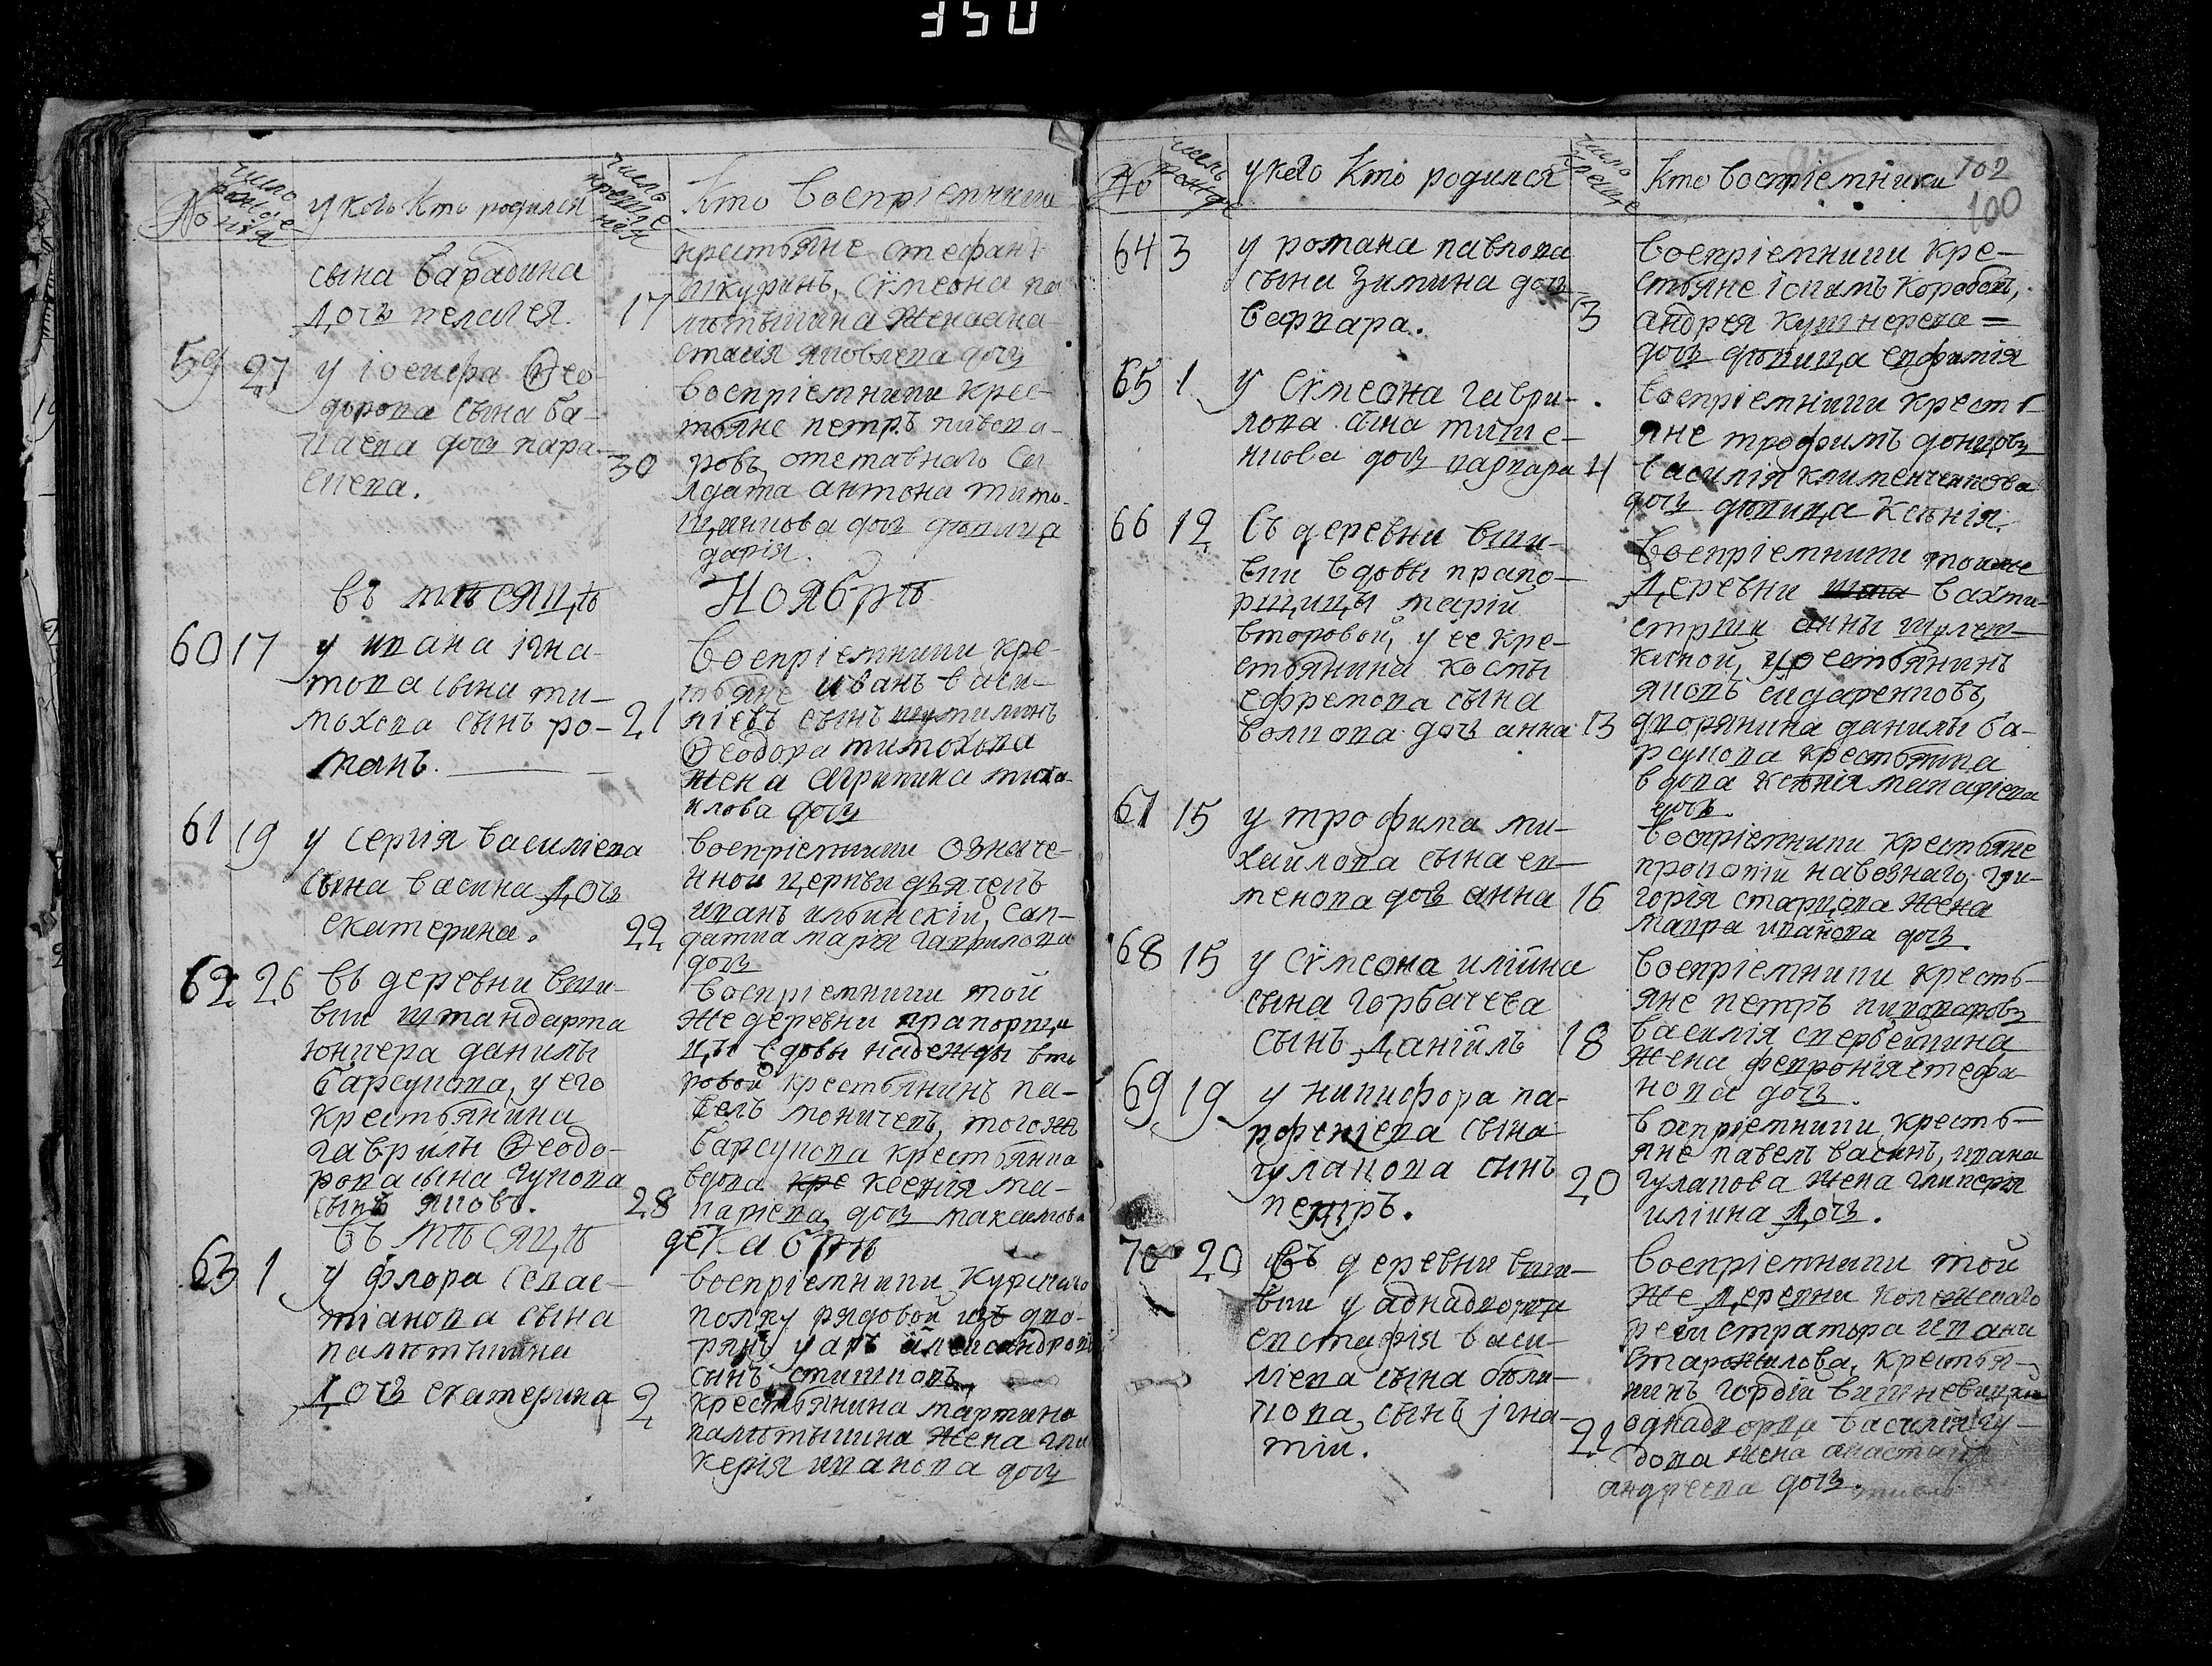 350
№
число рожде-
нія
у кого кто родился
число креще-
нія
кто воспріемники
сына барабина
дочь пелагея.
17
крестьяне стефанъ
шкуринъ, сѵмеона па
лютышина жена ана
стасія яковлева дочь
59 27 у іосифа Ѳео-
дорова сына ба-
дочь пара-
скева.
30
воспріемники крес-
тьяне петръ
ровъ, отставнаго са
лдата антона тимо-
дочь дѣвица
дарія.
въ мѣсяцѣ Ноябрѣ
60 17 у ивана игна-
това сына ти-
мохова сынъ ро-
манъ.
21
воспріемники кре-
стьяне иванъ васи-
ліевъ сынъ
Ѳеодора тимохова
жена агрипина миха-
илова дочь
61 19 у сергія василіева
сына васина дочь
екатерина.
22
воспріемники означе-
нной церкви дьячекъ
иванъ ильинскій, сал-
датка марія гаврилова
дочь
62 26 въ деревни
штандарта
юнкера данилы
барсукова, у его
крестьянина
гаврилы Ѳеодо-
рова сына гукова
сынъ яковъ.
28
воспріемники той
же деревни прапорщи
цы вдовы надежды вто
ровой крестьянинъ па-
велъ моничевъ, того же
барсукова крестьянка
вдова кре ксенія ма-
каріева дочь максимова
въ мѣсяцѣ декабрѣ
63 1 у флора севас-
тіанова сына
палютышина
дочь екатерина
2
воспріемники курскаго
полку рядовой изъ дво-
рянъ уаръ александровъ
сынъ
крестьянина мартина
палютышина жена гли
керія иванова дочь
№
число рожде
у кого кто родился
число креще
кто воспріемники
102
100
64 3 у романа павлова
сына зимина дочь
варвара.
3
воспріемники кре-
стьяне
андрея кушнерева =
дочь дѣвица евфимія
65 1 у сѵмеона гаври-
лова сына тише-
нкова дочь варвара
4
воспріемники кресть
яне трофимъ донцовъ
василія клименченкова
дочь дѣвица ксѣнія.
66 12 Съ деревни
вдовы прапо-
рщицы маріи
второвой, у ее кре-
стьянина космы
ефремова сына
волкова дочь анна
13
воспріемники тоиже
деревни вахми-
стрши анны
крестьянинъ
яковъ сидаренковъ,
дворянина данилы ба-
рсукова крестьянка
вдова ксѣнія макаріева
дочь.
67 15 у трофима ми-
хайлова сына се-
менова дочь анна
16
воспріемники крестьяне
прокопій навознаго, гри-
горія старцова жена
мавра иванова дочь.
68 15 у сѵмеона иліина
сына горбачева
сынъ даніилъ
18
воспріемники кресть-
яне петръ пивоваровъ
василія
жена февронія стефа
нова дочь.
69 19 у никифора па-
рфеніева сына
гулакова сынъ
петръ.
20
воспріемники кресть-
яне павелъ васинъ, ивана
гулакова жена гликерія
иліина дочь.
70 20 Въ деревни
у аднадворца
евстафія васи-
ліева сына бѣли-
кова, сынъ ігна-
тій.
21
воспріемники той
же деревни колежскаго
регистратора ивана
старожилова, крестья-
нинъ гордій
однадворца василія гу-
дова жена анастасія
андреева дочь.